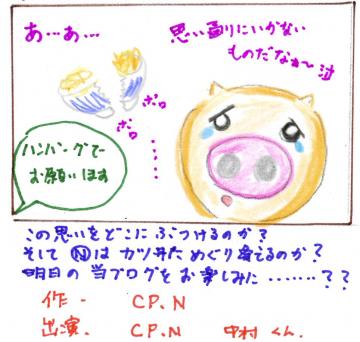 あ…あ…
思い通りにいかない
ものだなぁ〜泣
ポロ
ポロ
ハンバーグで
お願いします
この思いをどこにぶつけるのか?
そしてⓃはカツ丼にめぐり会えるのか??
明日の当ブログをお楽しみに……??
作- CP.N
出演. CP.N 中村くん.